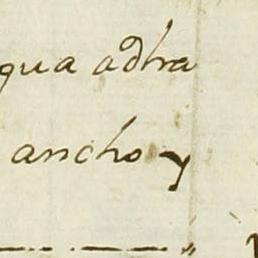 qua adha
ancho y